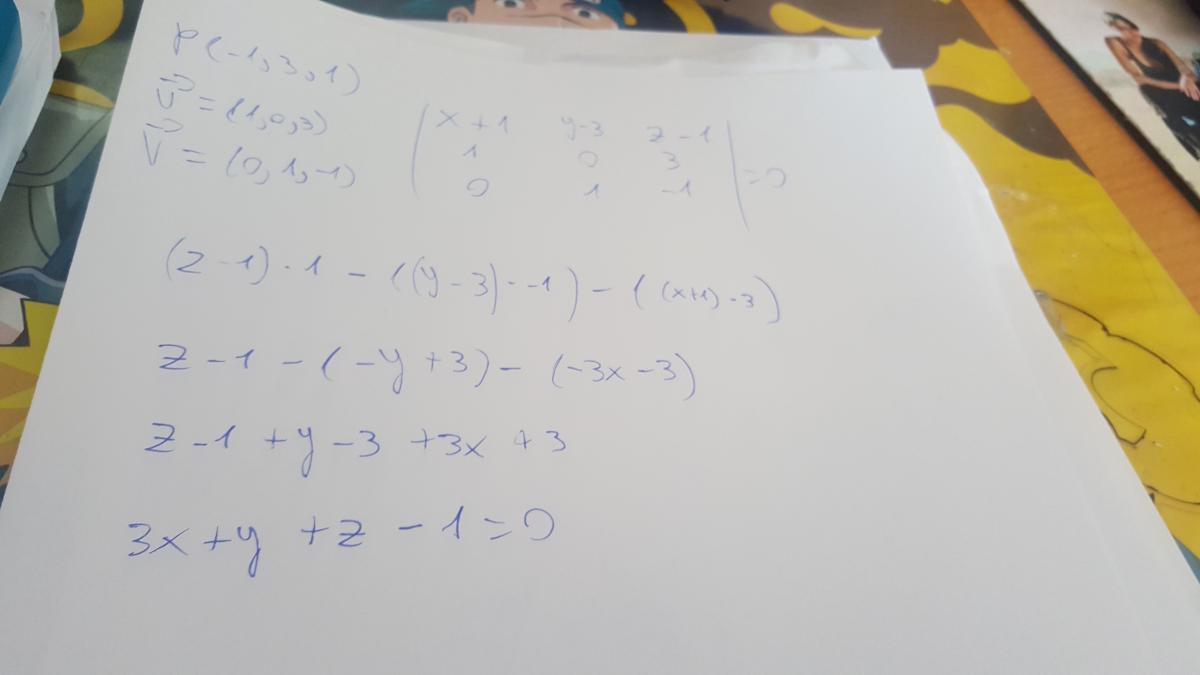 P(-1,3,1)
u⃗ = (1,0,3)
v⃗ = (0,1,-1)
| x+1 y-3 z-1 |
| 1 0 3 | = 0
| 0 1 -1 |
(z-1)·1 - ((y-3)·-1) - ((x+1)·3)
z-1-(-y+3)-(-3x-3)
z-1+y-3+3x+3
3x+y+z-1=0